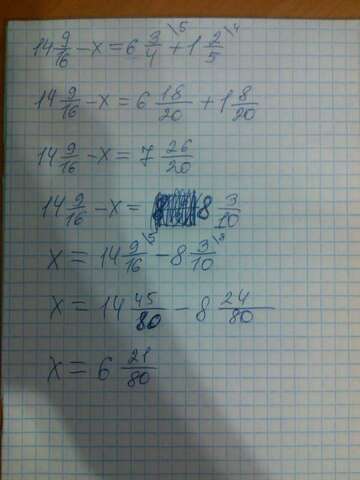 14 9/16 - x = 6 3/4 \5 + 1 2/5 \4
14 9/16 - x = 6 18/20 + 1 8/20
14 9/16 - x = 7 26/20
14 9/16 - x = 8 3/10
x = 14 9/16 \5 - 8 3/10 \8
x = 14 45/80 - 8 24/80
x = 6 21/80